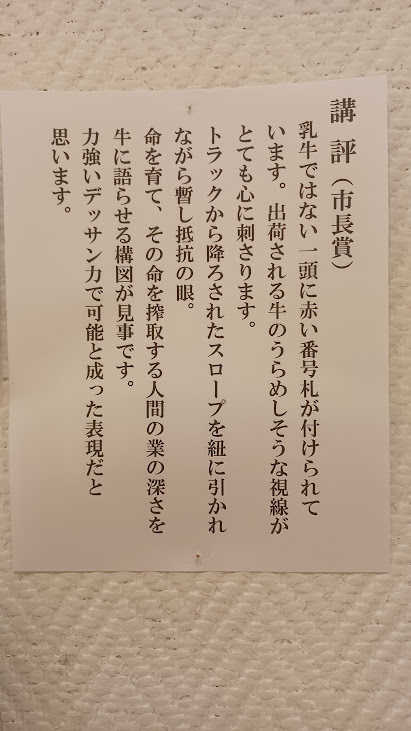 講評（市長賞）
乳牛ではない一頭に赤い番号札が付けられて
います。出荷される牛のうらめしそうな視線が
とても心に刺さります。
トラックから降ろされたスロープを紐に引かれ
ながら暫し抵抗の眼。
命を育て、その命を搾取する人間の業の深さを
牛に語らせる構図が見事です。
力強いデッサン力で可能と成った表現だと
思います。